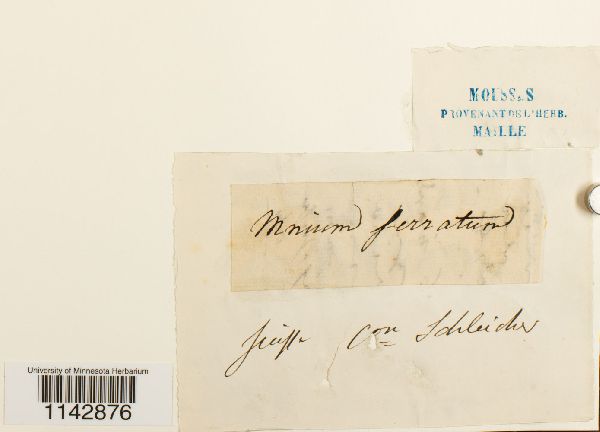 MOUSSES
PROVENANT DE L'HERB.
MAILLE
Mnium serratum
Suisse Com Schleicher
University of Minnesota Herbarium
1142876